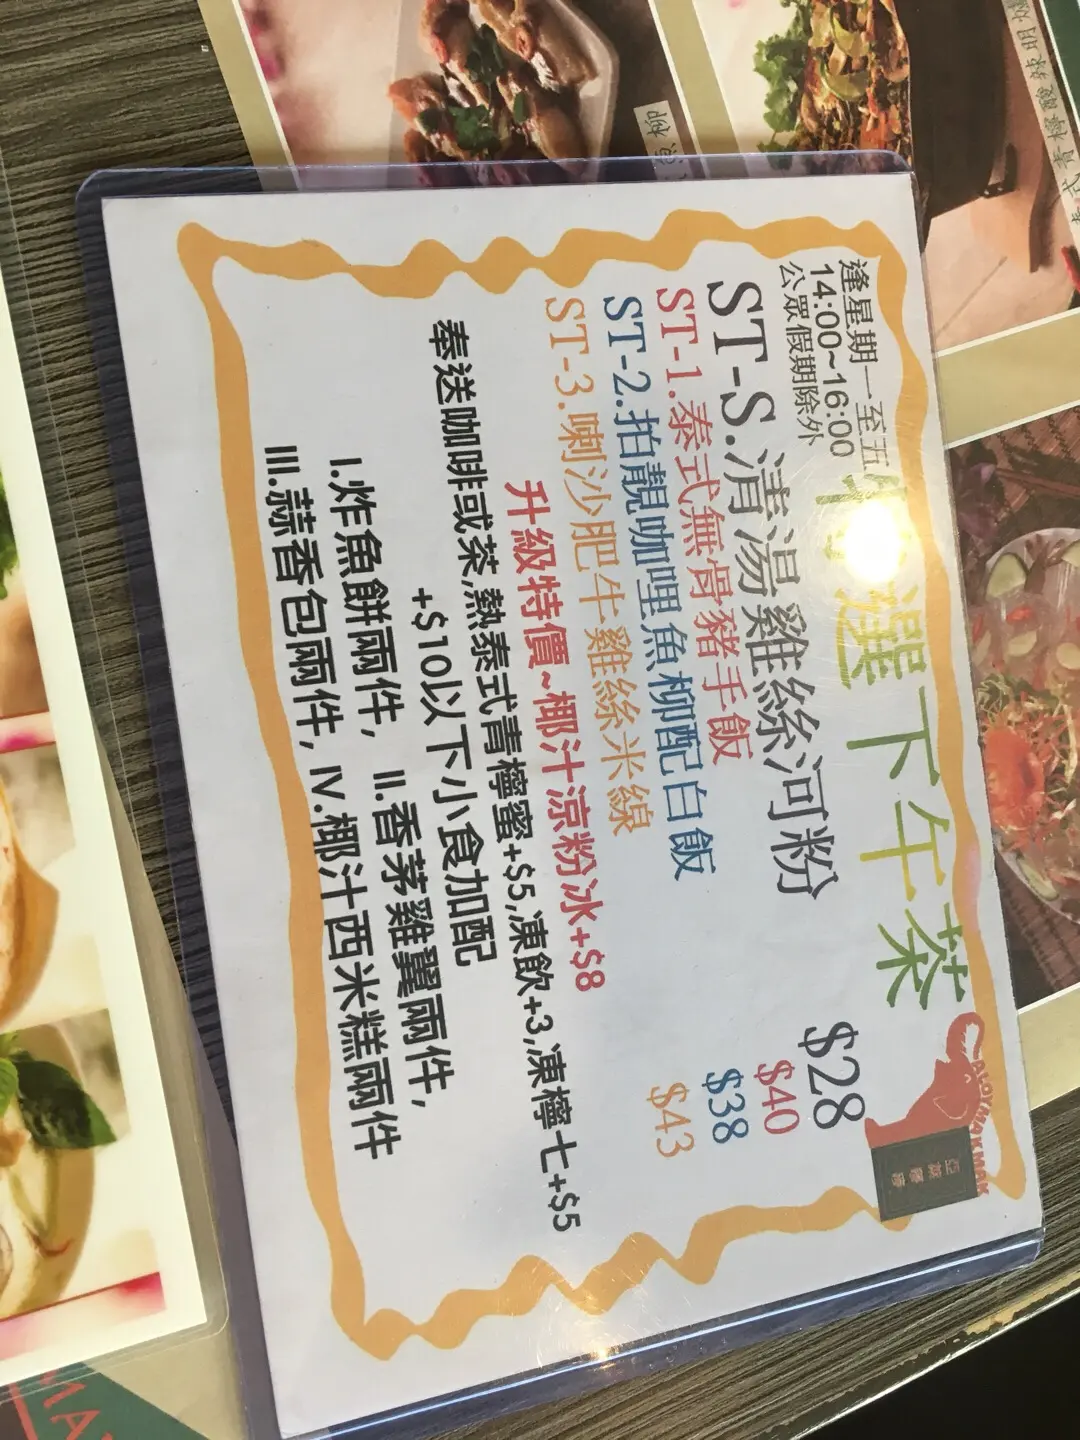 逢星期一至五
14:00~16:00
公眾假期除外
選下午茶
ST-S.清湯雞絲河粉 $28
ST-1.泰式無骨豬手飯 $40
ST-2.拍靚咖哩魚柳配白飯 $38
ST-3.喇沙肥牛雞絲米線 $43
升級特價~椰汁涼粉冰+$8
奉送咖啡或茶,熱泰式青檸蜜+$5,凍飲+3,凍檸七+$5
+$10以下小食加配
I.炸魚餅兩件, II.香茅雞翼兩件,
III.蒜香包兩件, IV.椰汁西米糕兩件